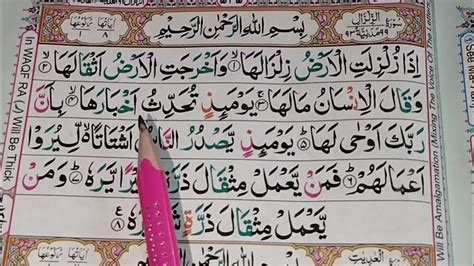 سُوْرَةُ الزِّلْزَال
بِسْمِ اللّٰهِ الرَّحْمٰنِ الرَّحِيْمِ
اِذَا زُلْزِلَتِ الْاَرْضُ زِلْزَالَهَا ۙ۝۱ وَاَخْرَجَتِ الْاَرْضُ اَثْقَالَهَا ۙ۝۲
وَقَالَ الْاِنْسَانُ مَا لَهَا ۚ۝۳ يَوْمَئِذٍ تُحَدِّثُ اَخْبَارَهَا ۙ۝۴ بِاَنَّ
رَبَّكَ اَوْحٰى لَهَا ؕ۝۵ يَوْمَئِذٍ يَّصْدُرُ النَّاسُ اَشْتَاتًا ۙ لِّيُرَوْا
اَعْمَالَهُمْ ؕ۝۶ فَمَنْ يَّعْمَلْ مِثْقَالَ ذَرَّةٍ خَيْرًا يَّرَهٗ ؕ۝۷ وَمَنْ
يَّعْمَلْ مِثْقَالَ ذَرَّةٍ شَرًّا يَّرَهٗ ۝۸
In WAQF RA (ر) Will Be Thick
Will Be Amalgamation (Mixing The Voice Of The